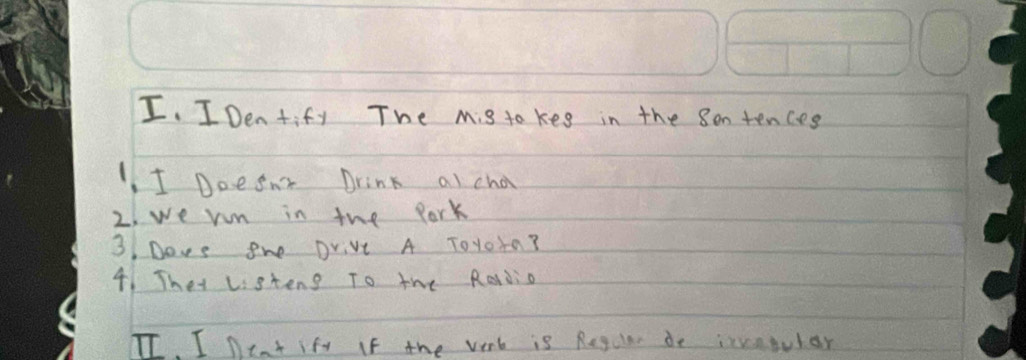 I. IDentify The mistakes in the sentences
1. I Doesn't Drink alchol
2. we run in the Park
3. Does she Drive A Toyota?
4. They Listens To the Radio
II. I Dentify if the verb is Regular de irregular